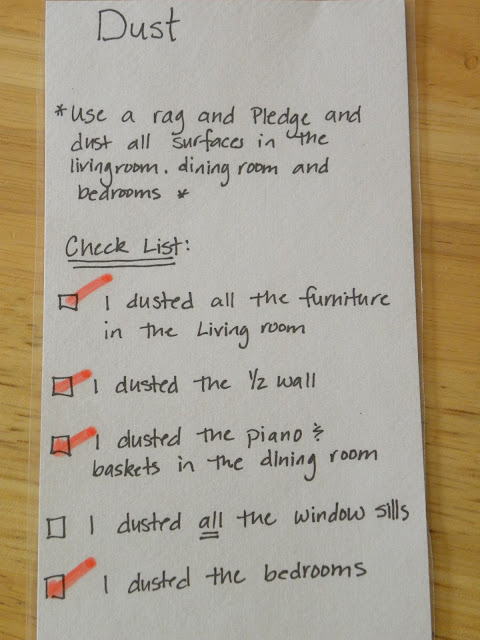 Dust
*Use a rag and Pledge and
dust all surfaces in the
livingroom. dining room and
bedrooms *
Check List:
I dusted all the furniture
in the Living room
I dusted the 1/2 wall
I dusted the piano &
baskets in the dining room
I dusted all the window sills
I dusted the bedrooms